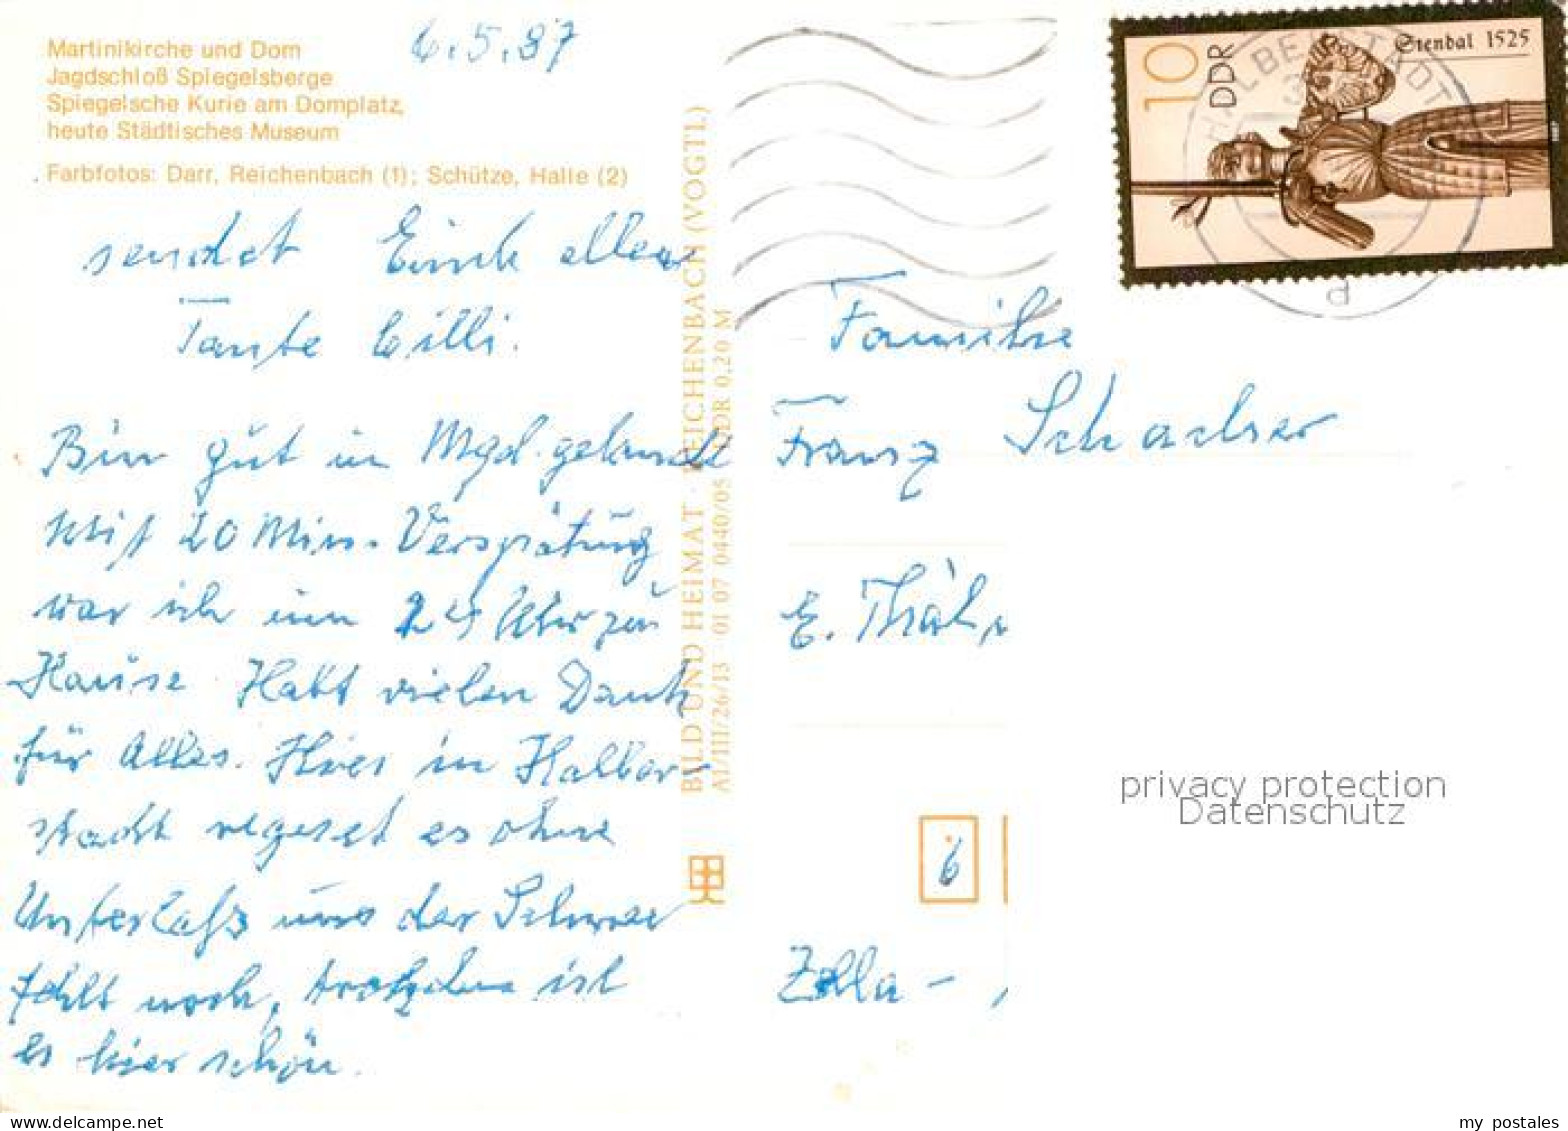 Martinikirche und Dom
Jagdschloß Spiegelsberge
Spiegelsche Kurie am Domplatz,
heute Städtisches Museum
Farbfotos: Darr, Reichenbach (1); Schütze, Halle (2)
6.5.87
sendet Euch allen
Tante Cilli.
Bin gut in Mgd. gelandet
Mit 20 Min. Verspätung
war ich um 24 Uhr zu
Hause Habt vielen Dank
für Alles. Hier in Halber-
stadt regnet es ohne
Unterlaß und der Schnee
fehlt noch, trotzdem ist
es hier schön.
BILD UND HEIMAT · REICHENBACH (VOGTL.)
A1/III/26/13 01 07 0440/05 DDR 0,20 M
10
DDR
Stendal 1525
HALBERSTADT
d
Familie
Franz Schachner
E. Thäl
6
Zella -
privacy protection
Datenschutz
my postales